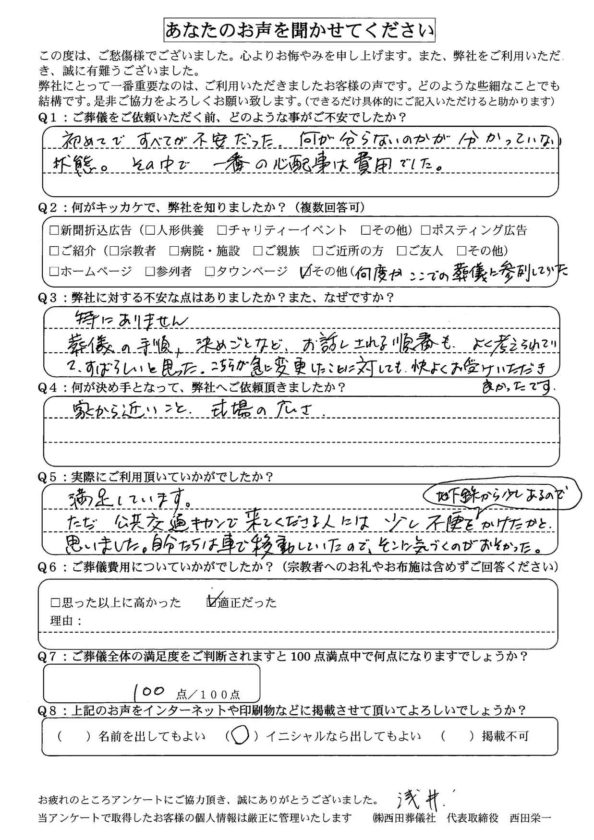 あなたのお声を聞かせてください
この度は、ご愁傷様でございました。心よりお悔やみを申し上げます。また、弊社をご利用いただ
き、誠に有難うございました。
弊社にとって一番重要なのは、ご利用いただきましたお客様の声です。どのような些細なことでも
結構です。是非ご協力をよろしくお願い致します。（できるだけ具体的にご記入いただけると助かります）
Q1：ご葬儀をご依頼いただく前、どのような事がご不安でしたか？
初めてで すべてが不安だった。何が分らないのかが分かっていない
状態。その中で 一番の心配事は費用でした。
Q2：何がキッカケで、弊社を知りましたか？（複数回答可）
□新聞折込広告（□人形供養 □チャリティーイベント □その他）□ポスティング広告
□ご紹介（□宗教者 □病院・施設 □ご親族 □ご近所の方 □ご友人 □その他）
□ホームページ □参列者 □タウンページ ☑その他（何度か ここでの葬儀に参列していた
Q3：弊社に対する不安な点はありましたか？また、なぜですか？
特にありません
葬儀の手順、決めごとなど、お話しされる順番も よく考えられてい
て、すばらしいと思った。こちらが急に変更したことに対しても、快よくお受けいただき
良かったです。
Q4：何が決め手となって、弊社へご依頼頂きましたか？
家から近いこと、式場の広さ
Q5：実際にご利用頂いていかがでしたか？
満足しています。
地下鉄から少しあるので
ただ 公共交通キカンで来てくださる人には 少し不便をかけたかと
思いました。自分たちは車で移動していたので、そこに気づくのがおそかった。
Q6：ご葬儀費用についていかがでしたか？（宗教者へのお礼やお布施は含めずご回答ください）
□思った以上に高かった ☑適正だった
理由：
Q7：ご葬儀全体の満足度をご判断されますと100点満点中で何点になりますでしょうか？
100 点/100点
Q8：上記のお声をインターネットや印刷物などに掲載させて頂いてよろしいでしょうか？
（ ）名前を出してもよい （○）イニシャルなら出してもよい （ ）掲載不可
お疲れのところアンケートにご協力頂き、誠にありがとうございました。 浅井
当アンケートで取得したお客様の個人情報は厳正に管理いたします ㈱西田葬儀社 代表取締役 西田栄一